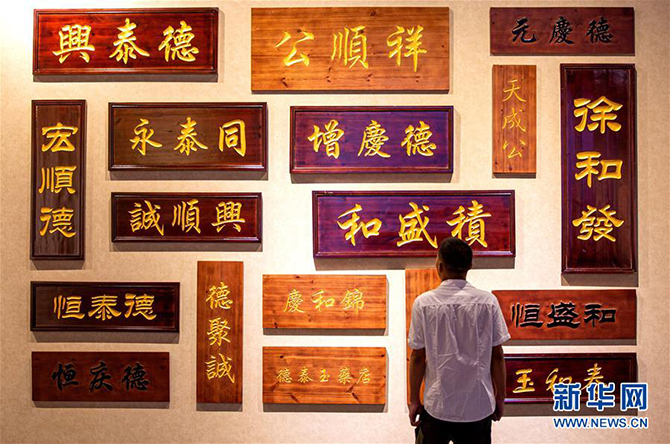 興泰德
公順祥
元慶德
宏順德
永泰同
增慶德
天成公
徐和發
誠順興
和盛積
恒泰德
德聚誠
慶和錦
恒盛和
恒庆德
德泰玉藥店
玉和泰
新华网
WWW.NEWS.CN